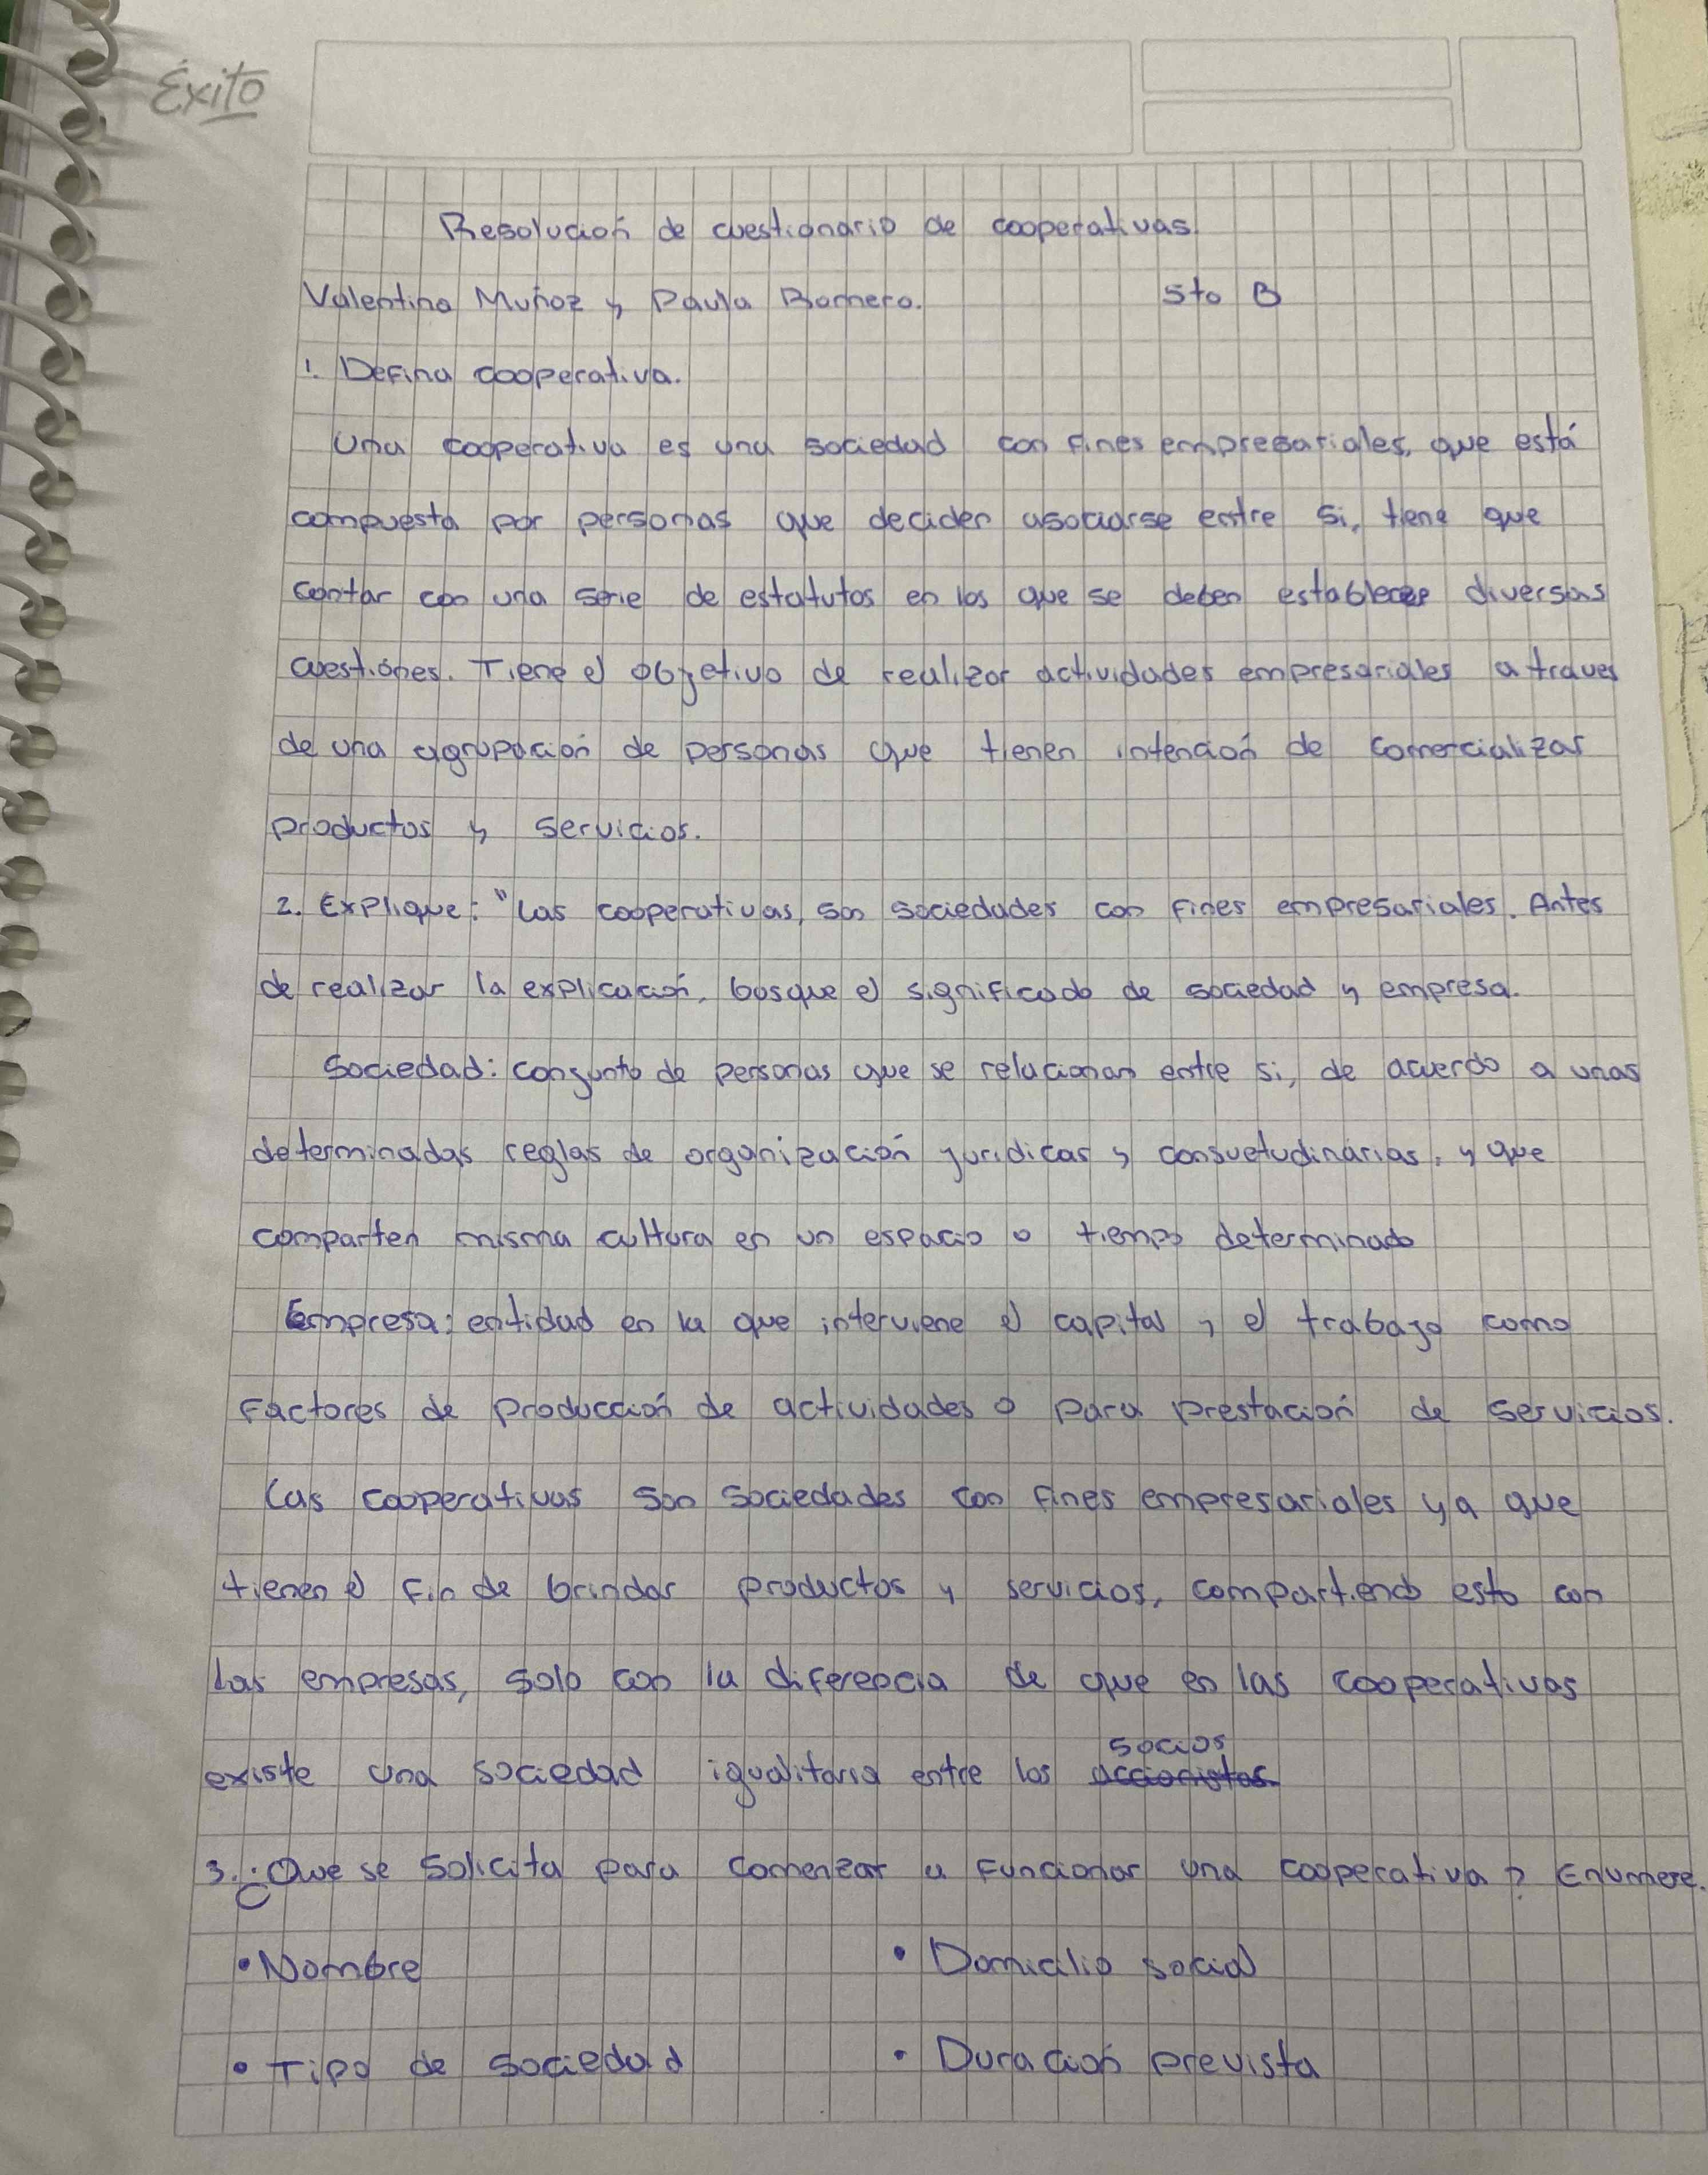 Éxito
Resolución de cuestionario de cooperativas
Valentina Muñoz y Paula Romero. 5to B
1. Defina cooperativa.
Una cooperativa es una sociedad con fines empresariales, que está
compuesta por personas que deciden asociarse entre si, tiene que
contar con una serie de estatutos en los que se deben establecer diversas
cuestiones. Tiene el objetivo de realizar actividades empresariales a traves
de una agrupación de personas que tienen intención de comercializar
productos y servicios.
2. Explique: "Las cooperativas, son sociedades con fines empresariales. Antes
de realizar la explicación, busque el significado de sociedad y empresa.
Sociedad: conjunto de personas que se relacionan entre si, de acuerdo a unas
determinadas reglas de organización juridicas y consuetudinarias, y que
comparten misma cultura en un espacio o tiempo determinado
Empresa: entidad en la que interviene el capital y el trabajo como
factores de producción de actividades o para prestación de servicios.
Las cooperativas son sociedades con fines empresariales ya que
tienen el fin de brindar productos y servicios, compartiendo esto con
las empresas, solo con la diferencia de que en las cooperativas
existe una sociedad igualitaria entre los accionistas socios
3. ¿Que se solicita para comenzar a funcionar una cooperativa? Enumere.
• Nombre • Domicilio social
• Tipo de sociedad • Duración prevista